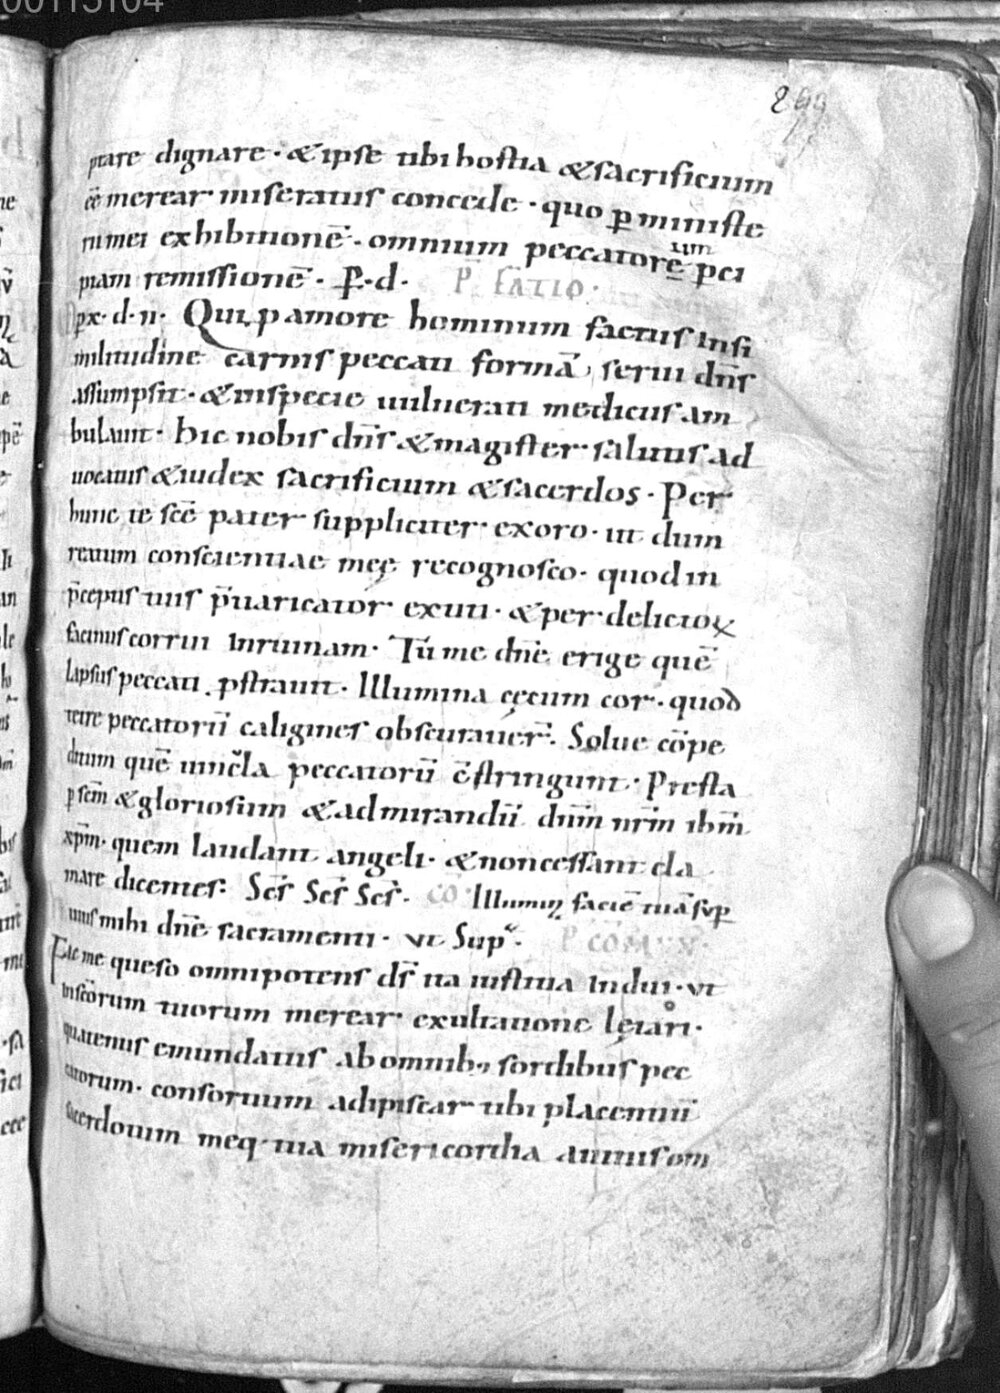 00115104
299
ptare dignare · & ipse tibi hostia & sacrificium
eē merear miseratus concede · quo p̱ ministe
rii mei exhibitionē · omnium peccatorē pci
um
piam remissionē · P̱ · d · P̄FATIO ·
px · d · n · Qui p amore hominum factus insi
militudine carnis peccati formā serui dn̄s
assumpsit · & inspecie uulnerati medicus am
bulauit · hic nobis dn̄s & magister salutis ad
uocatus & iudex sacrificium & sacerdos · Per
hunc te scē pater suppliciter exoro · ut dum
reatum conscientiae meę recognosco · quod in
p̄ceptis tuis p̄uaricator extiti · & per delictoꝝ
facinus corrui inruinam · Tū me dnē erige quē
lapsus peccati pstrauit · Illumina cęcum cor · quod
tetre peccatorū caligines obscurauer̄ · Solue cōpe
ditum quē uincla peccatorū c̄stringunt · Presta
p scm̄ & gloriosum & admirandū dnm̄ nr̄m ihm̄
xpm̄ · quem laudant angeli · & noncessant cla
mare dicentes : Scs̄ Scs̄ Scs̄ · CŌ Illumin̄ faciē tuā sup
tuis mihi dnē sacramenti · ut Sup · P COMVN ·
Fac me queso omnipotens ds̄ ita iustitia indui · ut
in scōrum tuorum merear exultatione lętari ·
quatenus emundatus ab omnib; sordibus pec
catorum · consortium adipiscar tibi placentiū
sacerdotum meq · tua misericordia a uitiis om